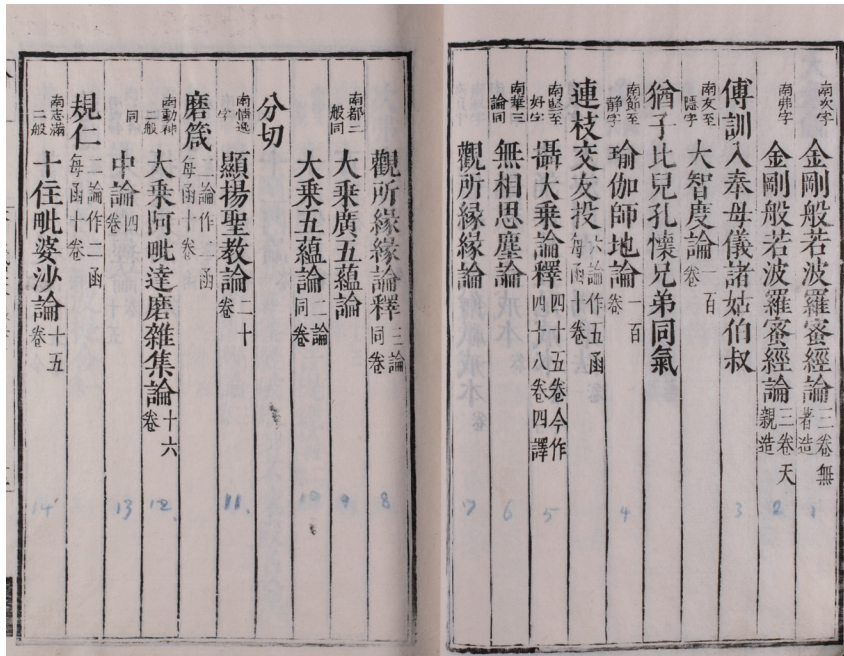 南次字 金剛般若波羅蜜經論 三卷無著造 1
南弗字 金剛般若波羅蜜經論 三卷天親造 2
傅訓入奉母儀諸姑伯叔
南友至隱字 大智度論 一百卷 3
猶子比兒孔懷兄弟同氣
南節至靜字 瑜伽師地論 一百卷 4
連枝交友投 六論作五函每函十卷
南堅至好字 攝大乘論釋 四十五卷今作四十八卷四譯 5
南華三論同 無相思塵論 6
觀所緣緣論 7
觀所緣緣論釋 三論同卷 8
南都二般同 大乘廣五蘊論 9
大乘五蘊論 二論同卷 10
分切
南情逸字 顯揚聖教論 二十卷 11
磨箴 二論作二函每函十卷
南動神二般 大乘阿毗達磨雜集論 十六卷 12
同 中論 四卷 13
規仁 二論作二函每函十卷
南志滿二般 十住毗婆沙論 十五卷 14